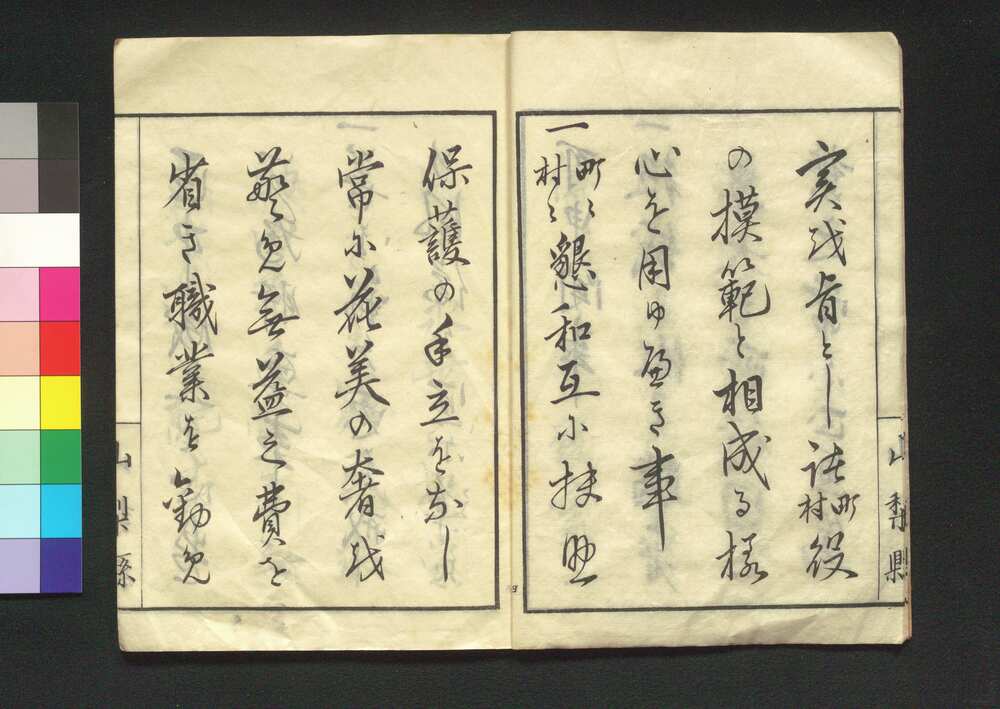 実を旨とし諸町村役
の模範と相成る様
心を用ゆべき事
一町々村々懇和互に扶助
保護の手立をなし
常に花美の奢を
警め無益之費を
省き職業を勧め
山梨縣
山梨縣